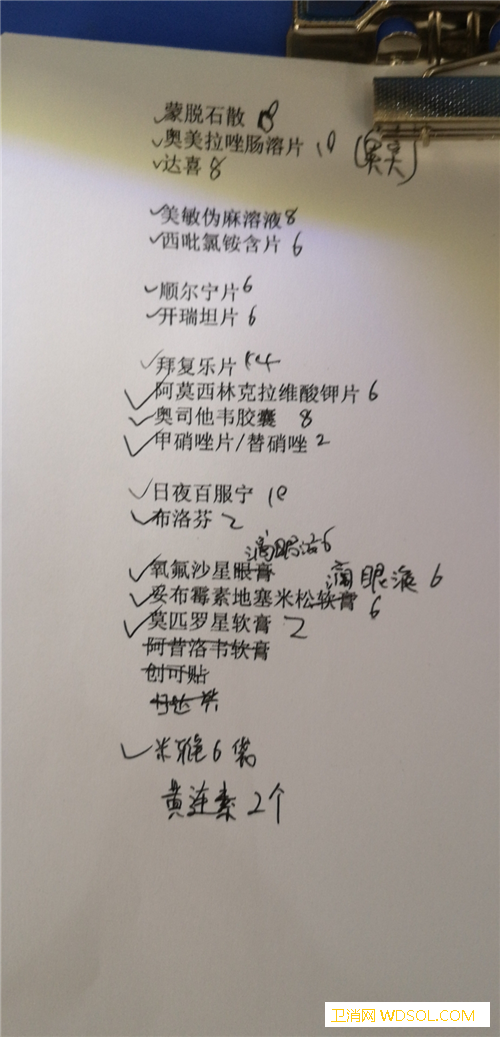 蒙脱石散 8
奥美拉唑肠溶片 10 (奥美)
达喜 8
美敏伪麻溶液 8
西吡氯铵含片 6
顺尔宁片 6
开瑞坦片 6
拜复乐片
阿莫西林克拉维酸钾片 6
奥司他韦胶囊 8
甲硝唑片/替硝唑 2
日夜百服宁 10
布洛芬 2
滴眼液 6
氧氟沙星眼膏
滴眼液 6
妥布霉素地塞米松软膏 6
莫匹罗星软膏 2
阿昔洛韦软膏
创可贴
米雅 6 袋
黄连素 2个
卫消网 WDSOL.COM